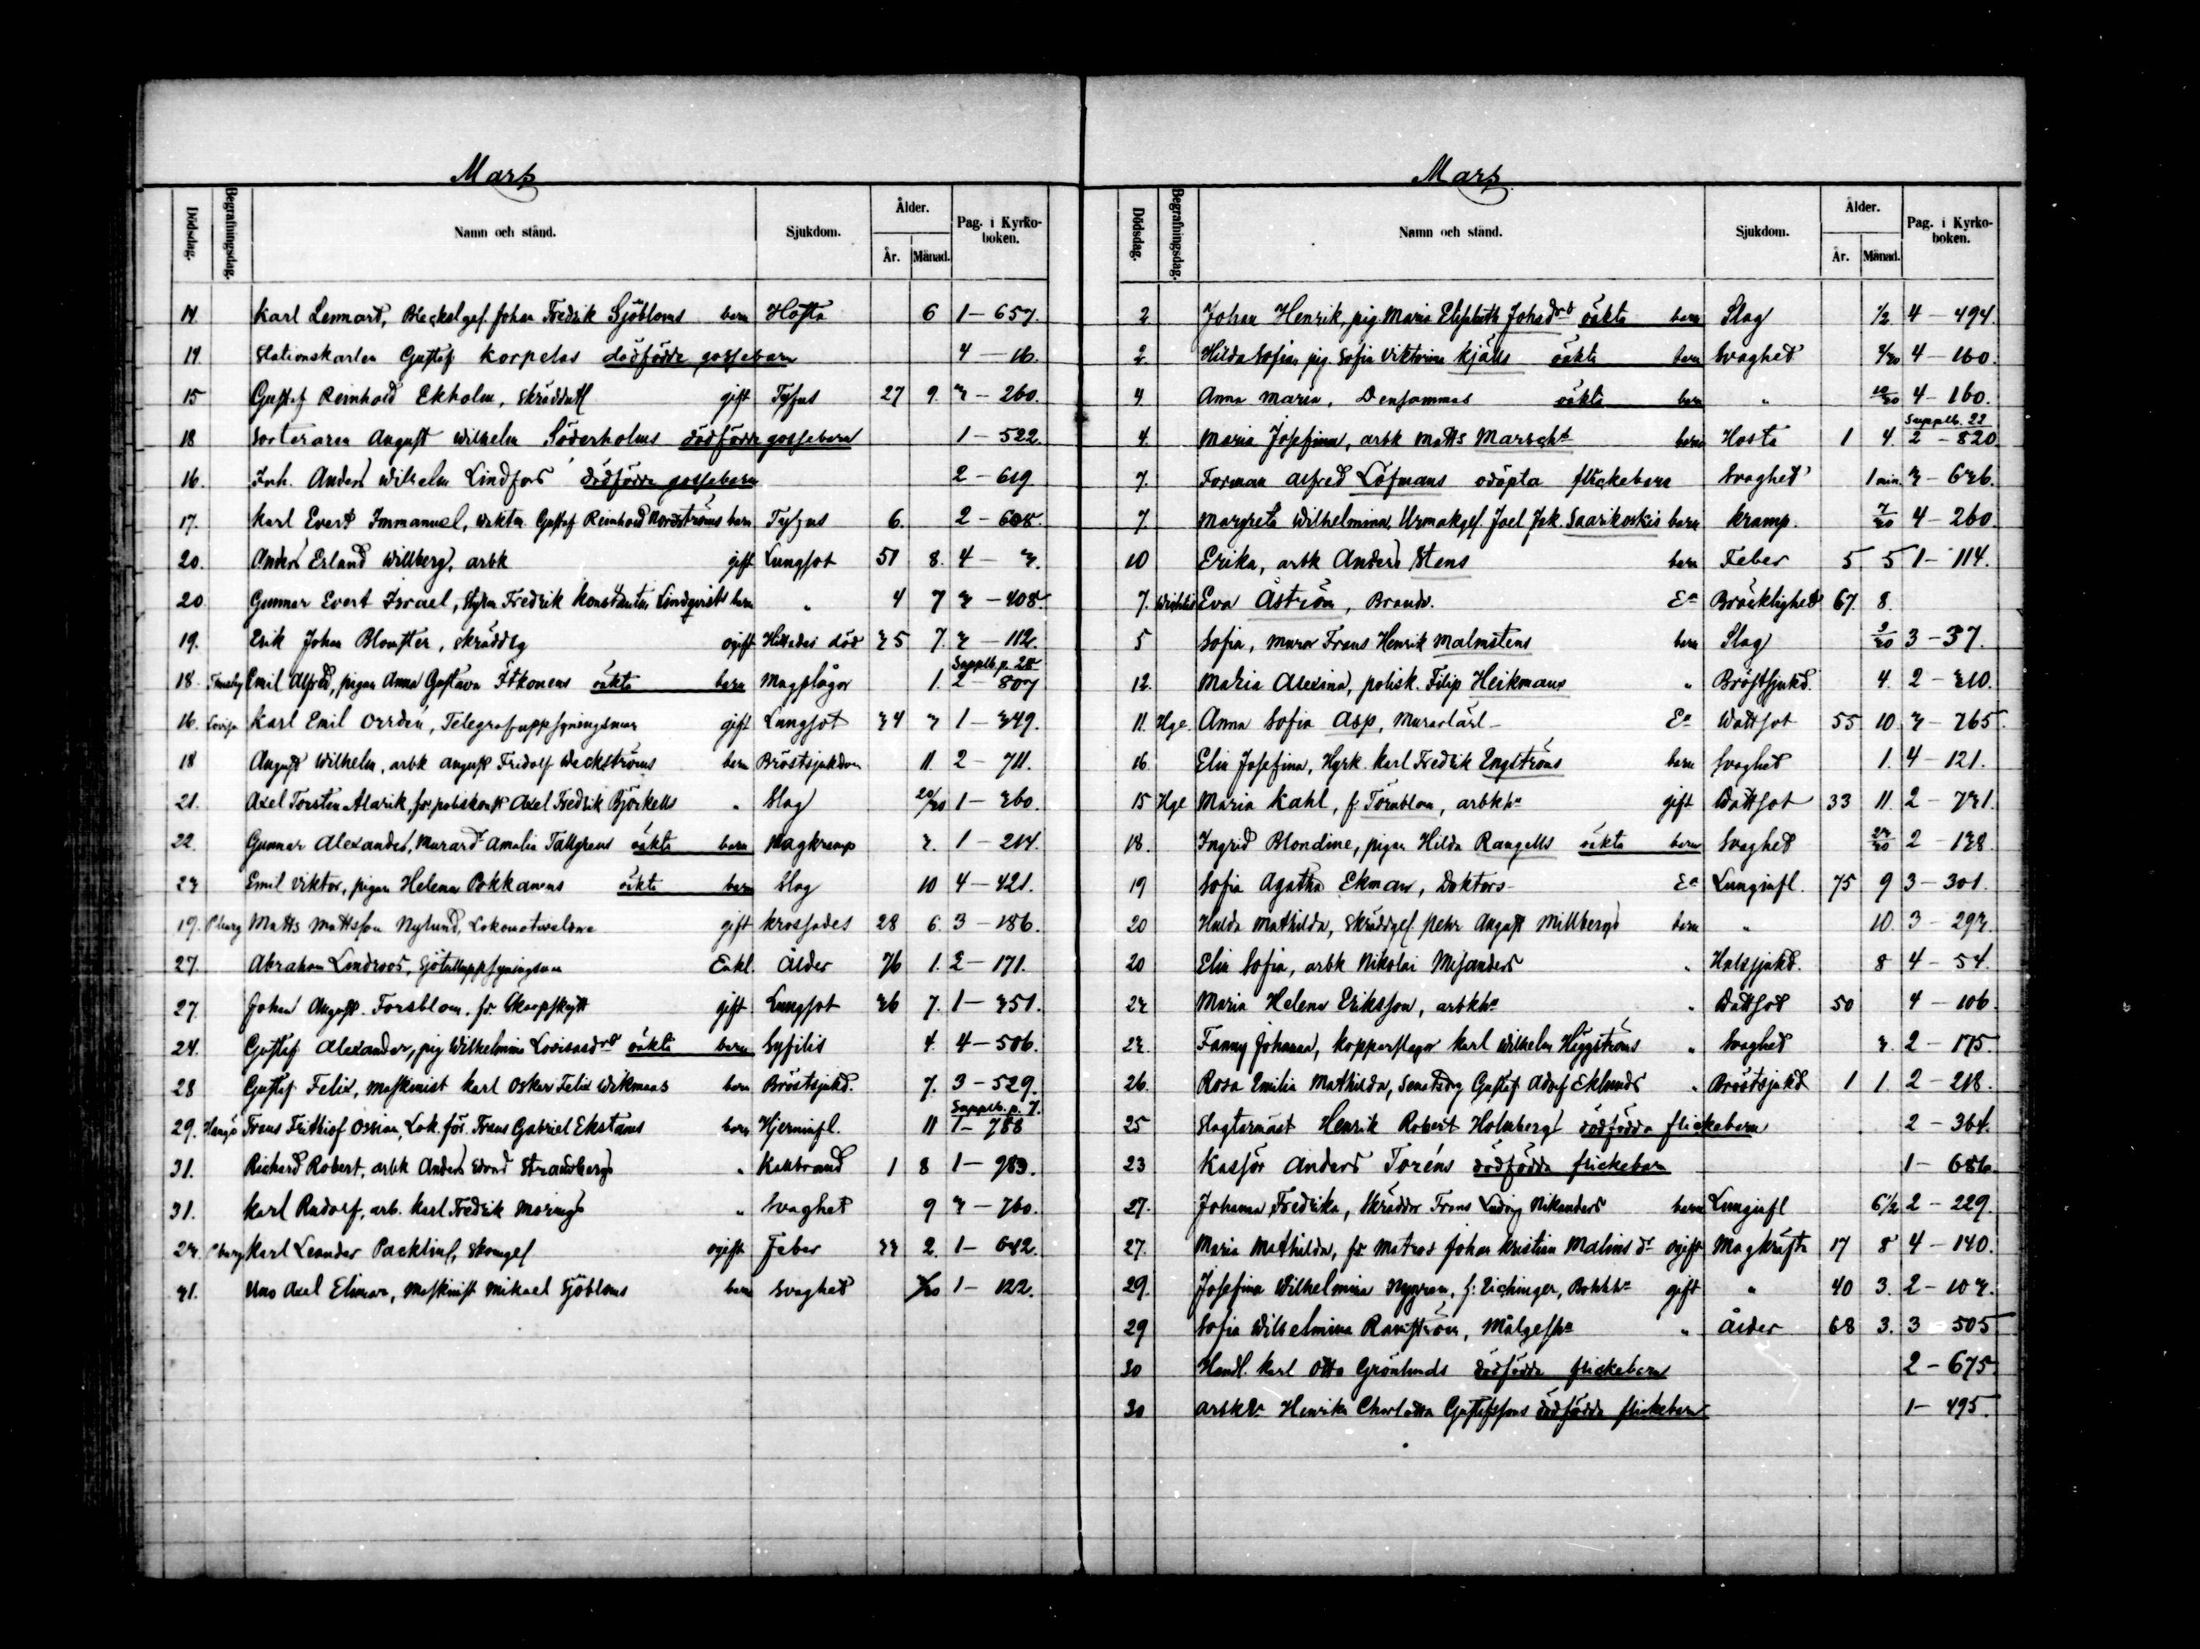 Mars
Dödsdag. Begrafningsdag. Namn och stånd. Sjukdom. Ålder. År. Månad. Pag. i Kyrko-boken.
14 Karl Lennart, Bleckslgef. Johan Fredrik Sjöbloms barn Hosta 6 1-657.
14. Stationskarlen Gustaf Korpelas dödfödde gossebarn 4-16.
15 Gustaf Reinhold Ekholm, gift Tyfus 27 9. 3-260.
18 Sorteraren August Wilhelm Söderholms dödfödde gossebarn 1-522.
16. Anders Wilhelm Lindfors dödfödde gossebarn 2-619
17. Karl Evert Immanuel, Vaktm. Gustaf Reinhold Nordströms barn Tyfus 6. 2-608.
20. Anders Erland Willberg, arbk gift Lungsot 51 8. 4-3.
20 Gunnar Evert Israel, Fredrik Konstantin Lindqvists barn " 4 7 3-408.
19. Erik Johan Blomster, ogift Hittades död 35 7. 3-112.
Supplb. p. 28
18 Emil Alfred, pigan Anna Gustava Itkonens oäkta barn Magplågor 1. 2-807
16. Lovisa Karl Emil Orrdén, Telegrafuppsyningsman gift Lungsot 34 3 1-349.
18 August Wilhelm, arbk August Fridolf Weckströms barn Bröstsjukdom 11. 2-711.
21. Axel Torsten Alarik, fr. poliskonst Axel Fredrik Björkells " Slag 20/30 1-360.
22. Gunnar Alexander, Amalia Tallgrens oäkta barn Magkramp 3. 1-214.
23 Emil Viktor, pigan Helena Pokkanens oäkta barn Slag 10 4-421.
19. Pburg Matts Mattsson Nylund, gift Krossades 28 6. 3-186.
27. Abraham Lindroos, Sjötulluppsyningsman Enkl. Ålder 76 1. 2-171.
27. Johan August Forsblom, fr. Skarpskytt gift Lungsot 36 7. 1-351.
24. Gustaf Alexander, pig Wilhelmina oäkta barn Syfilis 4. 4-506.
28 Gustaf Felix, Maskinist Karl Oskar Felix Wikmans barn Bröstsjukd. 7. 3-529.
Supplb. p. 7.
29. Hangö Frans Frithiof Ossian, Lok.för. Frans Gabriel Ekstams barn Hjerninfl. 11 1-788
31. Richard Robert, arbk Anders Edvard Strandbergs " Kallbrand 1 8 1-983.
31. Karl Rudolf, arb. Karl Fredrik Morings " Svaghet 9 3-760.
23. Pburg Karl Leander ogift Feber 33 2. 1-642.
31. Uno Axel Elimar, Maskinist Mikael Sjöbloms barn Svaghet 1-122.
Mars
Dödsdag. Begrafningsdag. Namn och stånd. Sjukdom. Ålder. År. Månad. Pag. i Kyrko-boken.
2 Johan Henrik, pig. Maria Elisabeth Johsdrs oäkta barn Slag 1/2 4-494.
2 Hilda Sofia, pig. Sofia Viktorina Kjälls oäkta barn Svaghet 4-160.
4. Anna Maria, Densammas oäkta barn " 10/30 4-160.
Supplb. 22
4. Maria Josefina, arbk Matts barn Hosta 1 4. 2-820
7. Forman Alfred Löfmans odöpta flickebarn Svaghet 1 min. 3-636.
7. Margreta Wilhelmina, Urmakgef. Joel Jak. Saarikoskis barn Kramp. 7/30 4-260.
10 Erika, arbk Anders Stens barn Feber 5 5 1-114.
7. Wichtis Eva Åström, Brandv. Ea Bräcklighet 67. 8.
5 Sofia, murar Frans Henrik Malmstens barn Slag 2/30 3-37.
12. Maria Alexina, polisk. Filip Heikmans " Bröstsjukd. 4. 2-310.
11. Hge. Anna Sofia Asp, Ea Wattsot 55 10 3-765.
16. Elin Josefina, Hyrk. Karl Fredrik Engströms barn Svaghet 1. 4-121.
15 Hge Maria Kahl, f. Törnblom, arbkha gift Wattsot 33 11. 2-731.
18. Ingrid Blondine, pigan Hilda Rangells oäkta barn Svaghet 2-138.
19 Sofia Agatha Ekman, Doktors- Ea Lunginfl. 75 9 3-301.
20 Hulda Mathilda, Skräddgef. Pehr August Millbergs barn " 10. 3-293.
20 Elin Sofia, arbk Nikolai " Halssjukd. 8 4-54.
23 Maria Helena Eriksson, arbkha " Wattsot 50 4-106.
23. Fanny Johanna, Kopparslagar Karl Wilhelm Häggströms " Svaghet 3. 2-175.
26. Rosa Emilia Mathilda, Gustaf Adolf Eklunds " Bröstsjukd 1 1. 2-218.
25 Slagtarmäst Henrik Robert Holmbergs dödfödda flickebarn 2-364.
23 Kassör Anders Toréns dödfödda flickebarn 1-686
27. Johanna Fredrika, Skräddar Frans Ludvig Nikanders barn Lunginfl 6 1/2 2-229.
27. Maria Mathilda, fr. Matros Johan Kristian Malins dr ogift Magkräfta 17 8 4-140.
29. Josefina Wilhelmina Nygren, f. Eichinger, gift " 40 3. 2-103.
29 Sofia Wilhelmina " Ålder 68 3. 3 505
30 Handl. Karl Otto Grönlunds dödfödda flickebarn 2-675.
30 Henrika Charlotta Gustafssons dödfödda flickebarn 1-495.